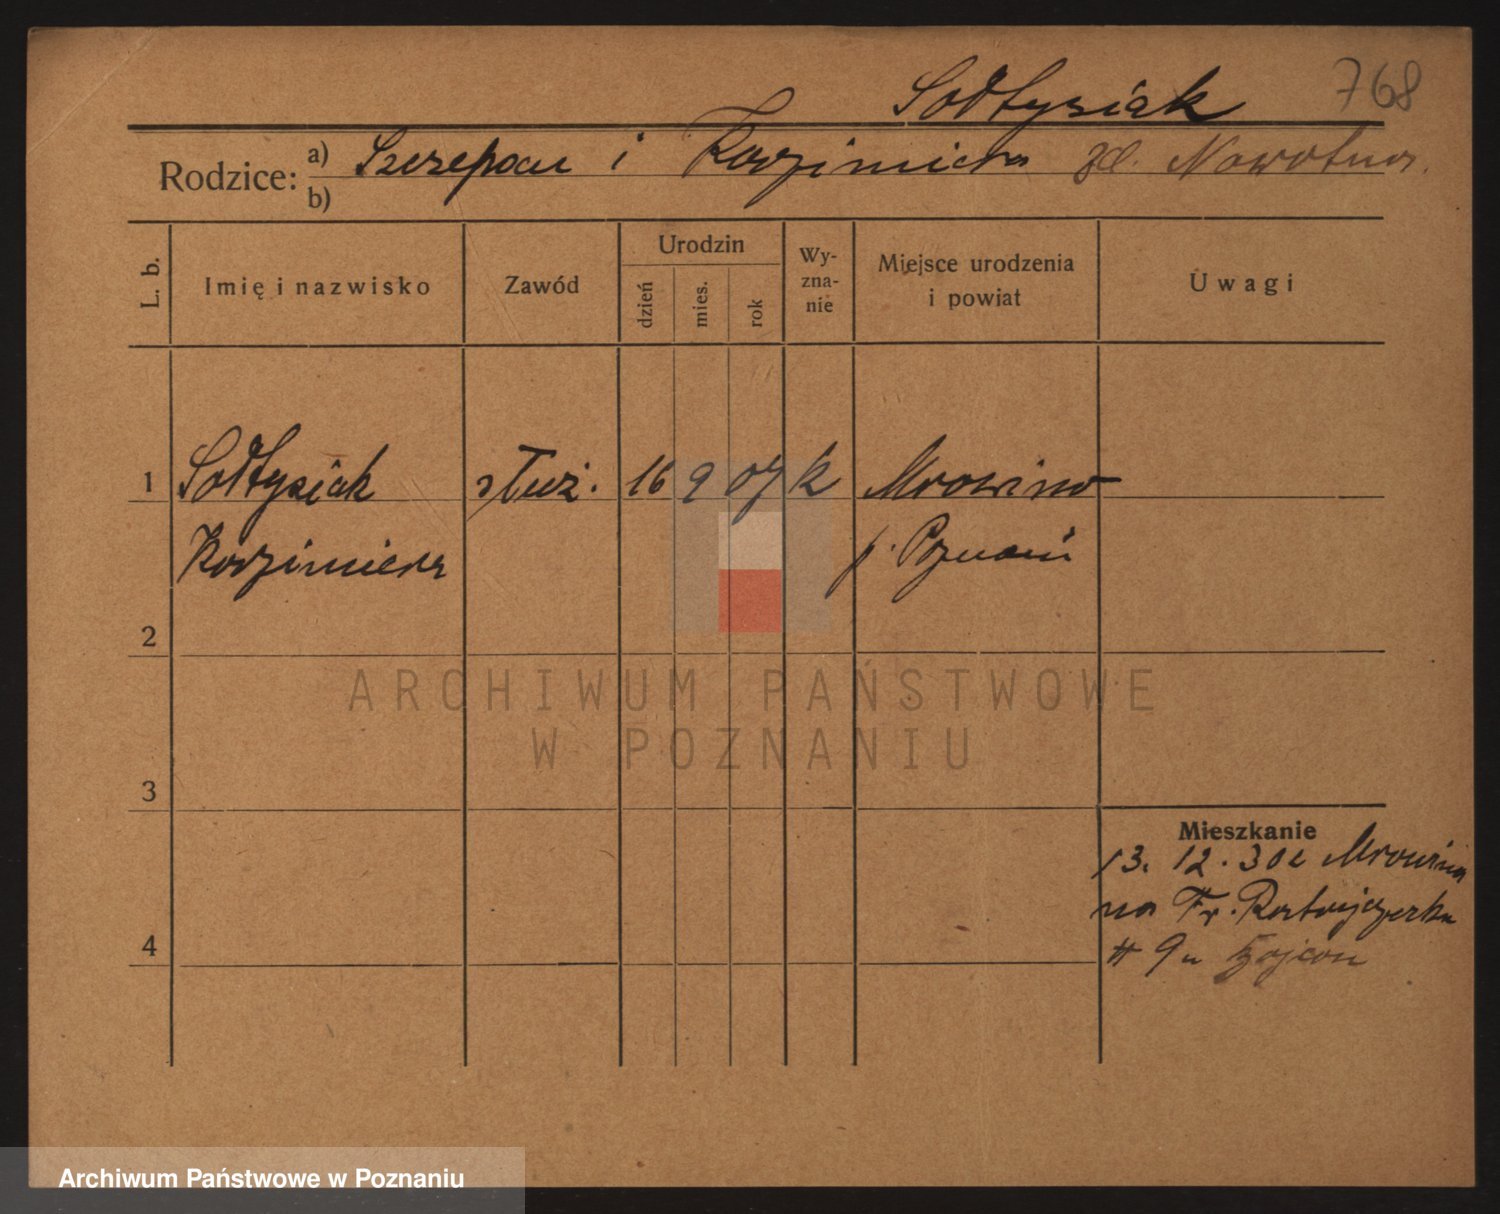 Sołtysiak 768
Rodzice: a) Szczepan i Kazimiera zd. Nowotna.
b)
L. b. Imię i nazwisko Zawód Urodzin dzień mies. rok Wy-zna-nie Miejsce urodzenia i powiat Uwagi
1 Sołtysiak służ. 16 9 07 k Mrowino
Kazimiera p. Poznań
2
ARCHIWUM PAŃSTWOWE
W POZNANIU
3
Mieszkanie
13. 12. 30 z Mrowina
na Fr. Ratajczaka
4 # 9 u
Archiwum Państwowe w Poznaniu